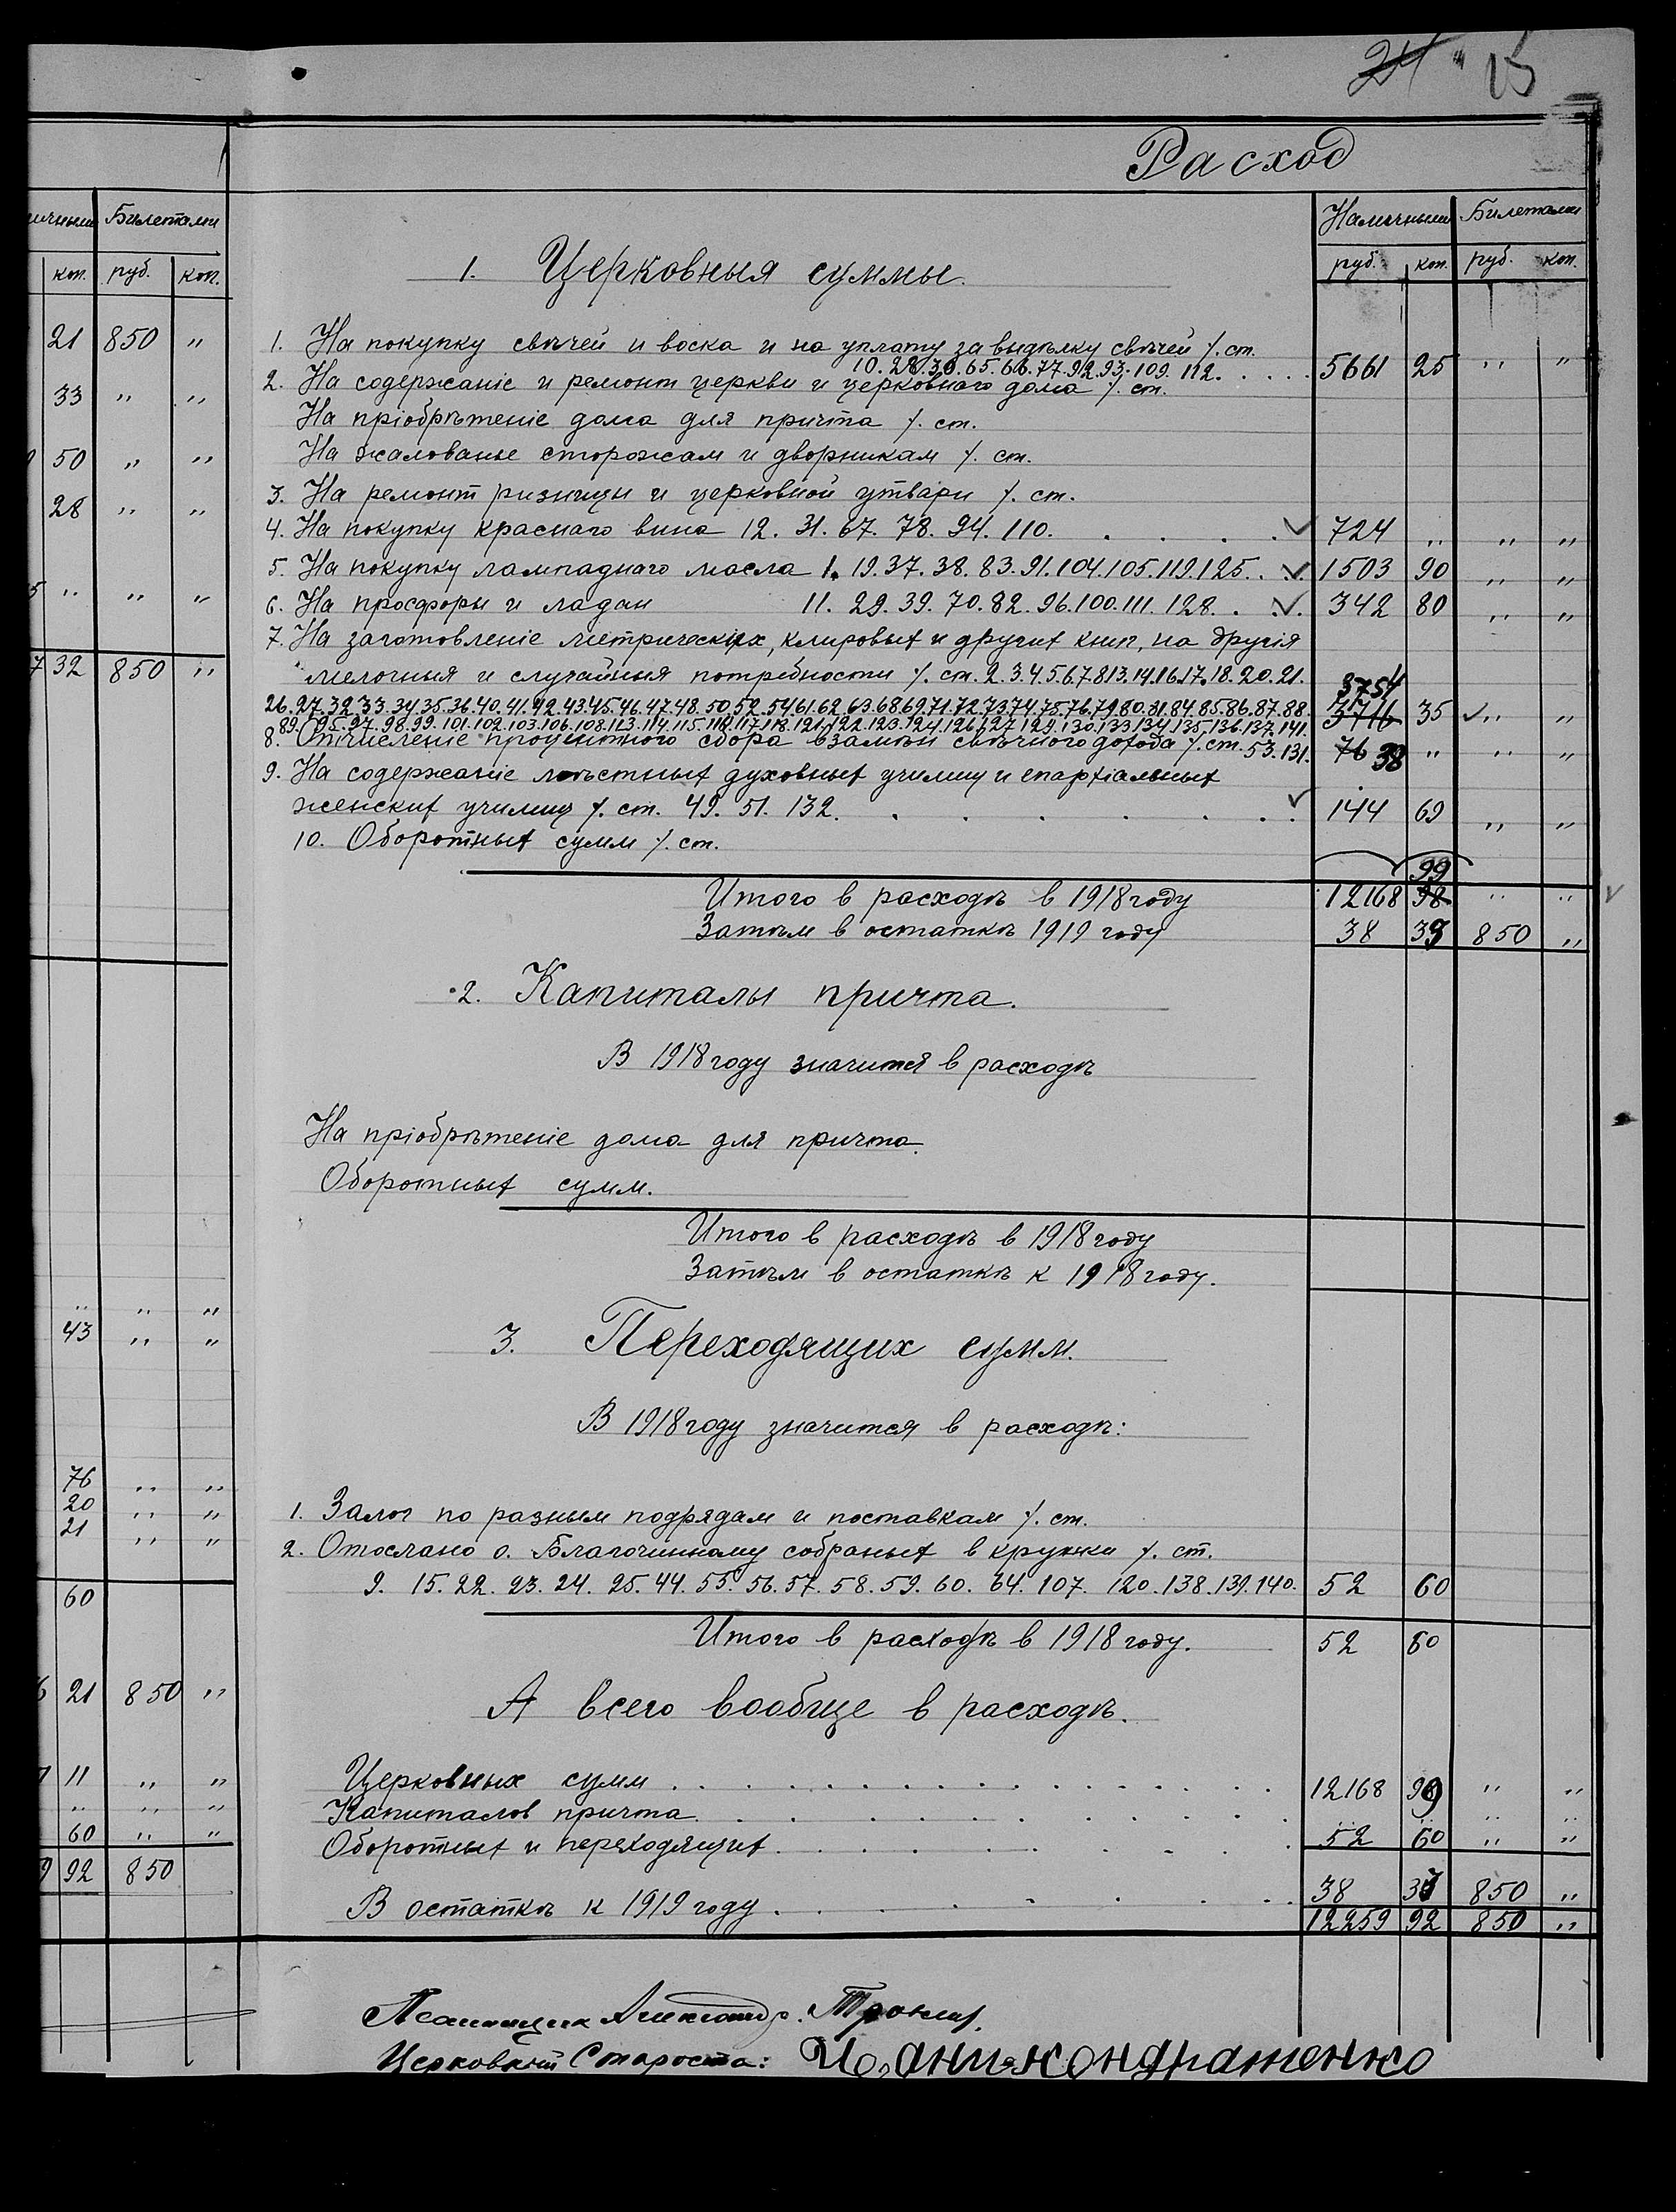 24 " 15
Расход
ичными Билетами
коп. руб. коп.
21 850 "
33 " "
50 " "
28 " "
5 " " "
7 32 850 "
" " "
43 " "
76 " "
20 " "
21 " "
60
6 21 850 "
11 " "
" " "
60 " "
9 92 850
Наличными Билетами
руб. коп. руб. коп.
1. Церковныя суммы.
1. На покупку свѣчей и воска и на уплату за выдѣлку свѣчей /. ст.
10. 28. 30. 65. 66. 77. 92. 93. 109. 112. 5661 25 " "
2. На содержаніе и ремонт церкви и церковнаго дома /. ст.
На пріобрѣтеніе дома для причта /. ст.
На жалованье сторожам и дворникам /. ст.
3. На ремонт ризницы и церковной утвари /. ст.
4. На покупку краснаго вина 12. 31. 67. 78. 94. 110. 724 " " "
5. На покупку лампаднаго масла 1. 19. 37. 38. 83. 91. 104. 105. 119. 125. 1503 90 " "
6. На просфоры и ладан 11. 29. 39. 70. 82. 96. 100. 111. 128. 342 80 " "
7. На заготовленіе метрических, клировых и других книг, на другія
мелочныя и случайныя потребности /. ст. 2. 3. 4. 5. 6. 7. 8. 13. 14. 16. 17. 18. 20. 21. 3754
26. 27. 32. 33. 34. 35. 36. 40. 41. 42. 43. 45. 46. 47. 48. 50. 52. 54. 61. 62. 63. 68. 69. 71. 72. 73. 74. 75. 76. 79. 80. 81. 84. 85. 86. 87. 88. 3716 35 " "
89. 95. 97. 98. 99. 101. 102. 103. 106. 108. 113. 114. 115. 116. 117. 118. 121. 122. 123. 124. 126. 127. 129. 130. 133. 134. 135. 136. 137. 141.
8. Отчисленіе процентнаго сбора взамѣн свѣчного дохода /. ст. 53. 131. 76 38 " " "
9. На содержаніе мѣстных духовных училищ и епархіальных
женских училищ /. ст. 49. 51. 132. 144 69 " "
10. Оборотных сумм /. ст.
99
Итого в расходѣ в 1918 году 12168 98 " "
Затѣм в остаткѣ 1919 году 38 33 850 "
2. Капиталы причта.
В 1918 году значится в расходѣ
На пріобрѣтеніе дома для причта.
Оборотных сумм.
Итого в расходѣ в 1918 году
Затѣм в остаткѣ к 1918 году.
3. Переходящих сумм.
В 1918 году значится в расходѣ:
1. Залог по разным подрядам и поставкам /. ст.
2. Отослано о. Благочинному собраных в кружки /. ст.
9. 15. 22. 23. 24. 25. 44. 55. 56. 57. 58. 59. 60. 64. 107. 120. 138. 139. 140. 52 60
Итого в расходѣ в 1918 году. 52 60
А всего вообще в расходѣ.
Церковных сумм 12168 99 " "
Капиталов причта " " " "
Оборотных и переходящих 52 60 " "
В остаткѣ к 1919 году 38 33 850 "
12259 92 850 "
Псаломщик Александр
Церковный Староста: Кондратенко